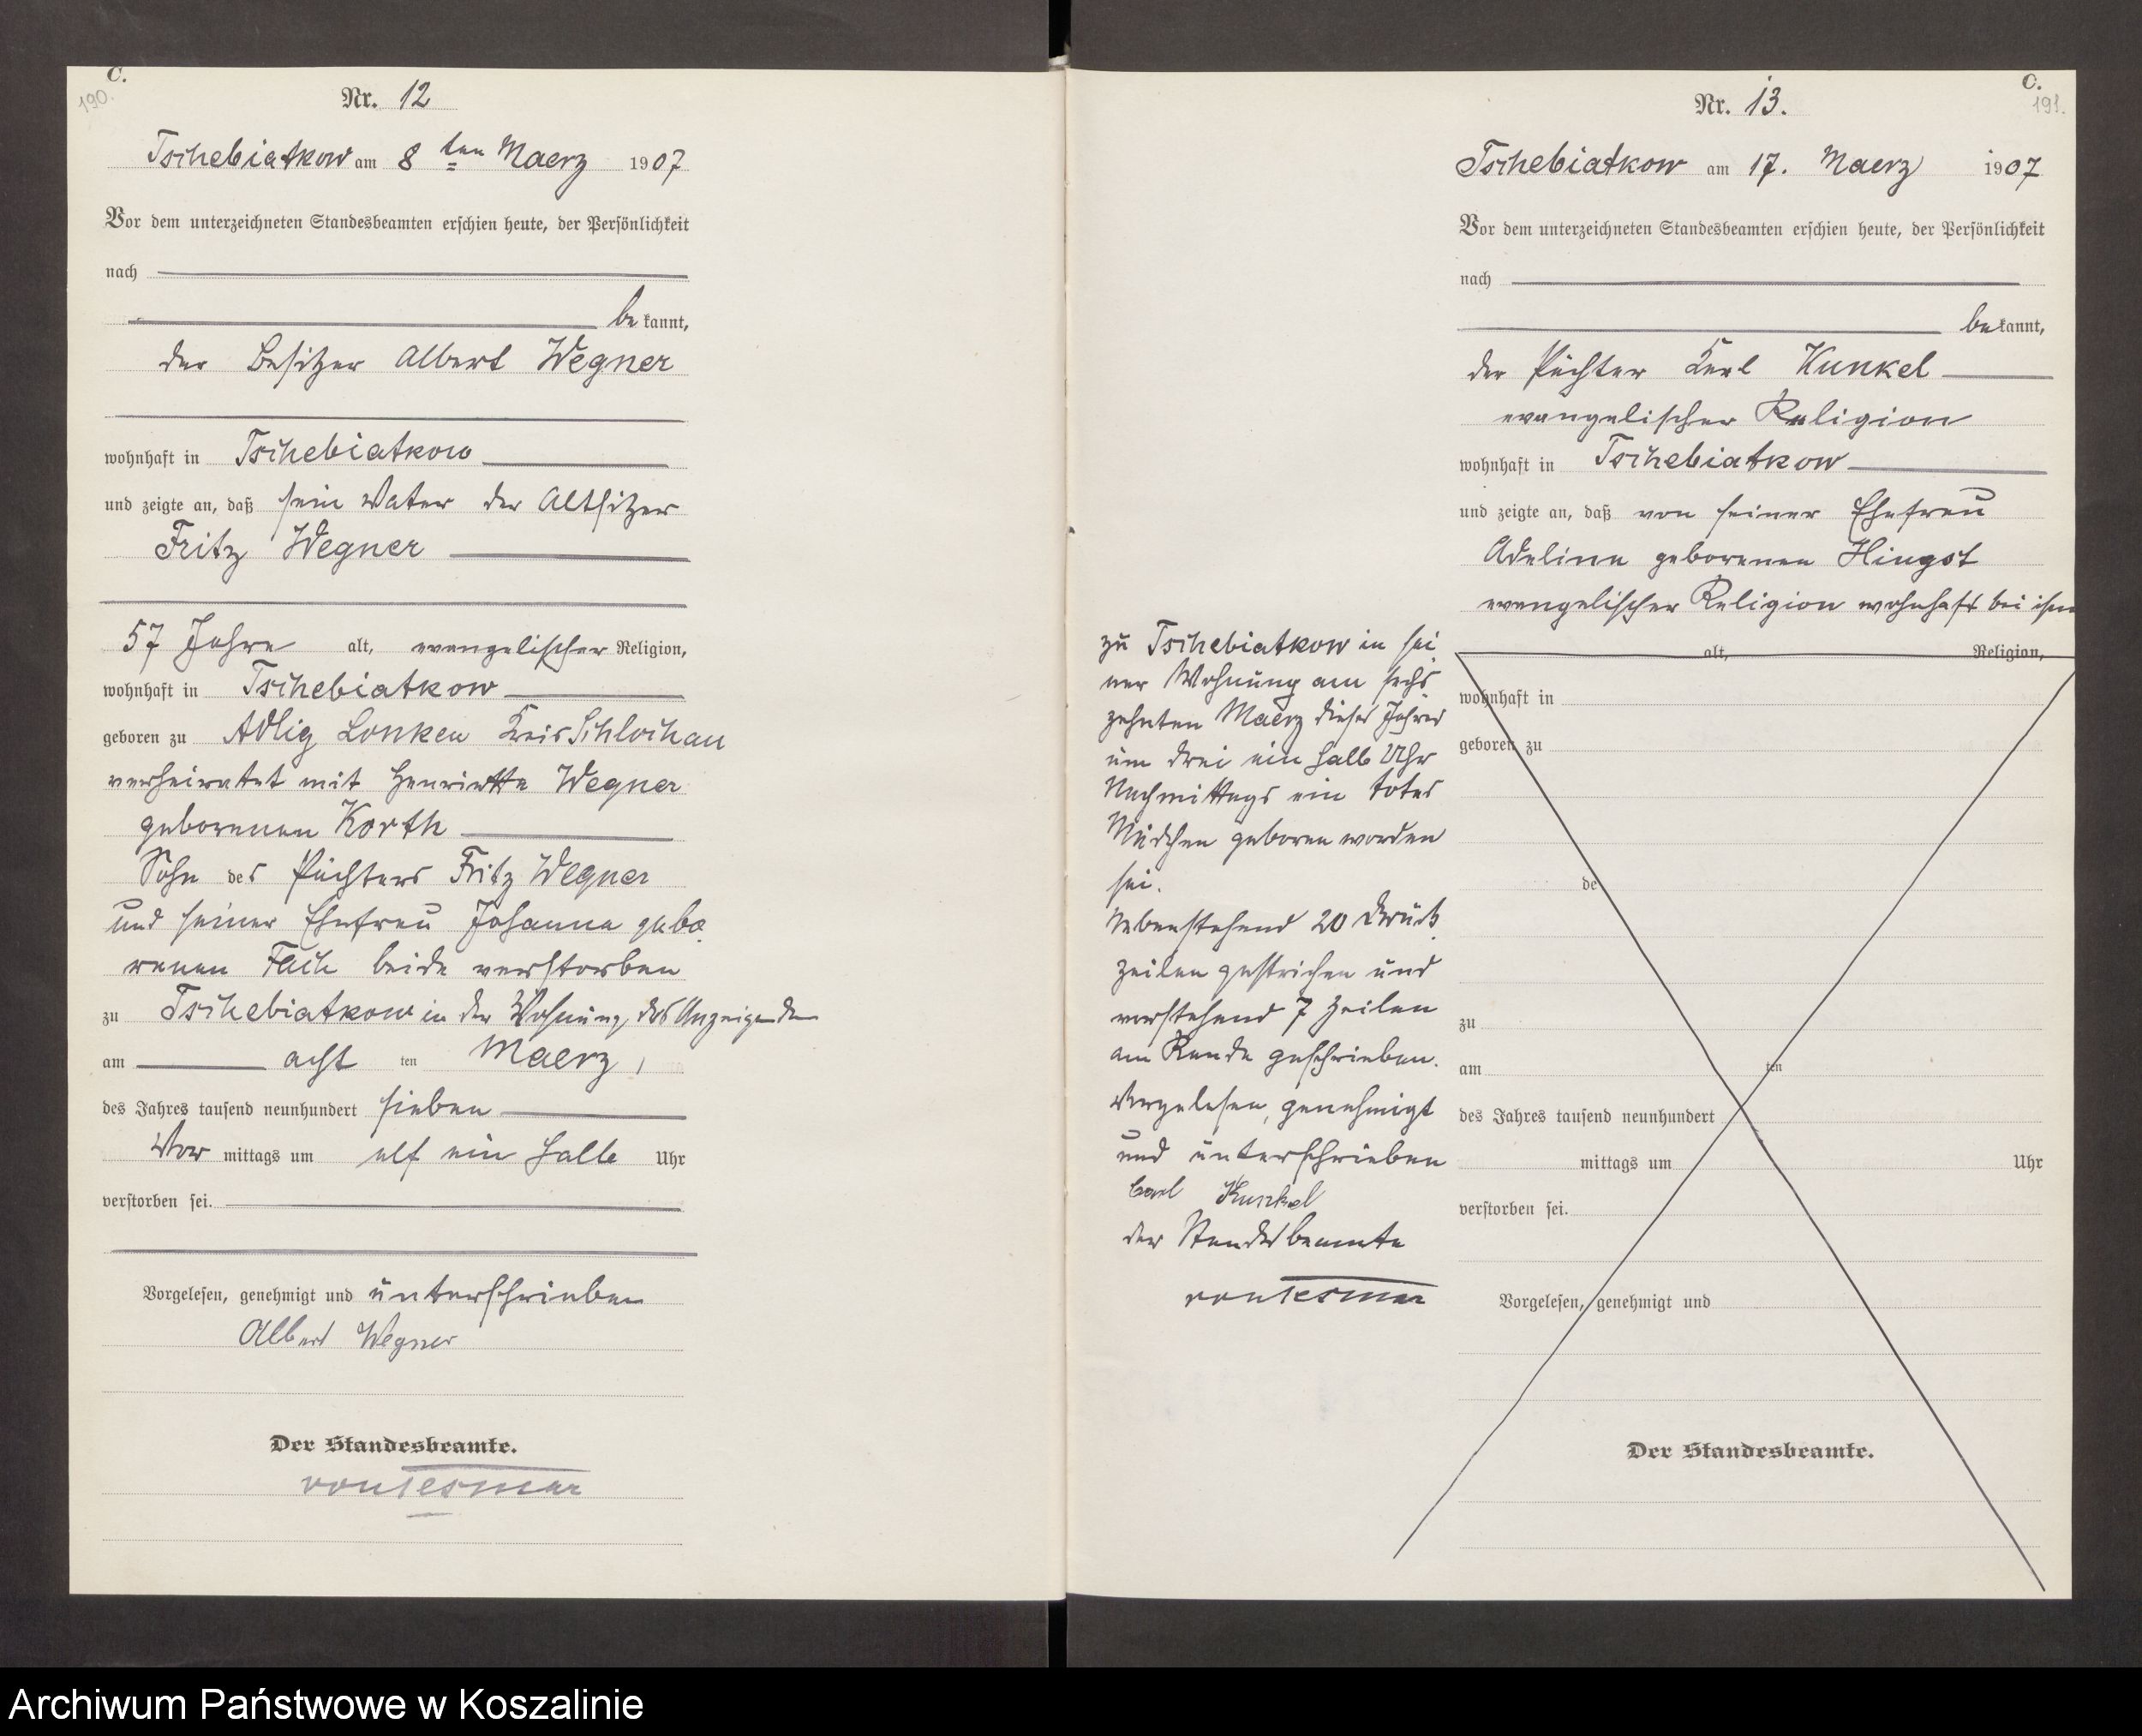 C.
190.
Nr. 12
Tschebiatkow am 8ten Maerz 1907
Vor dem unterzeichneten Standesbeamten erschien heute, der Persönlichkeit
nach
bekannt,
der Besitzer Albert Wegner
wohnhaft in Tschebiatkow
und zeigte an, daß sein Vater der Altsitzer
Fritz Wegner
57 Jahre alt, evangelischer Religion,
wohnhaft in Tschebiatkow
geboren zu Adlig Lonken Kreis Schlochau
verheiratet mit Henriette Wegner
geborenen Korth
Sohn des Pächters Fritz Wegner
und seiner Ehefrau Johanna gebo
renen Fach beide verstorben
zu Tschebiatkow in der Wohnung des Anzeigenden
am acht ten Maerz,
des Jahres tausend neunhundert sieben
Vor mittags um elf ein halb Uhr
verstorben sei.
Vorgelesen, genehmigt und unterschrieben
Albert Wegner
Der Standesbeamte.
von Tesmar
C.
191.
Nr. 13.
Tschebiatkow am 17. Maerz 1907
Vor dem unterzeichneten Standesbeamten erschien heute, der Persönlichkeit
nach
bekannt,
der Pächter Karl Kunkel
evangelischer Religion
wohnhaft in Tschebiatkow
und zeigte an, daß von seiner Ehefrau
Adeline geborenen Hingst
evangelischer Religion wohnhaft bei ihm
zu Tschebiatkow in sei
ner Wohnung am sechs
zehnten Maerz dieses Jahres
um drei ein halb Uhr
Nachmittags ein totes
Mädchen geboren worden
sei.
Nebenstehend 20 Druck
zeilen gestrichen und
vorstehend 7 Zeilen
am Rande geschrieben.
Vorgelesen, genehmigt
und unterschrieben
Carl Kunkel
der Standesbeamte
von Tesmar
alt, Religion,
wohnhaft in
geboren zu
de
zu
am ten
des Jahres tausend neunhundert
mittags um Uhr
verstorben sei.
Vorgelesen, genehmigt und
Der Standesbeamte.
Archiwum Państwowe w Koszalinie